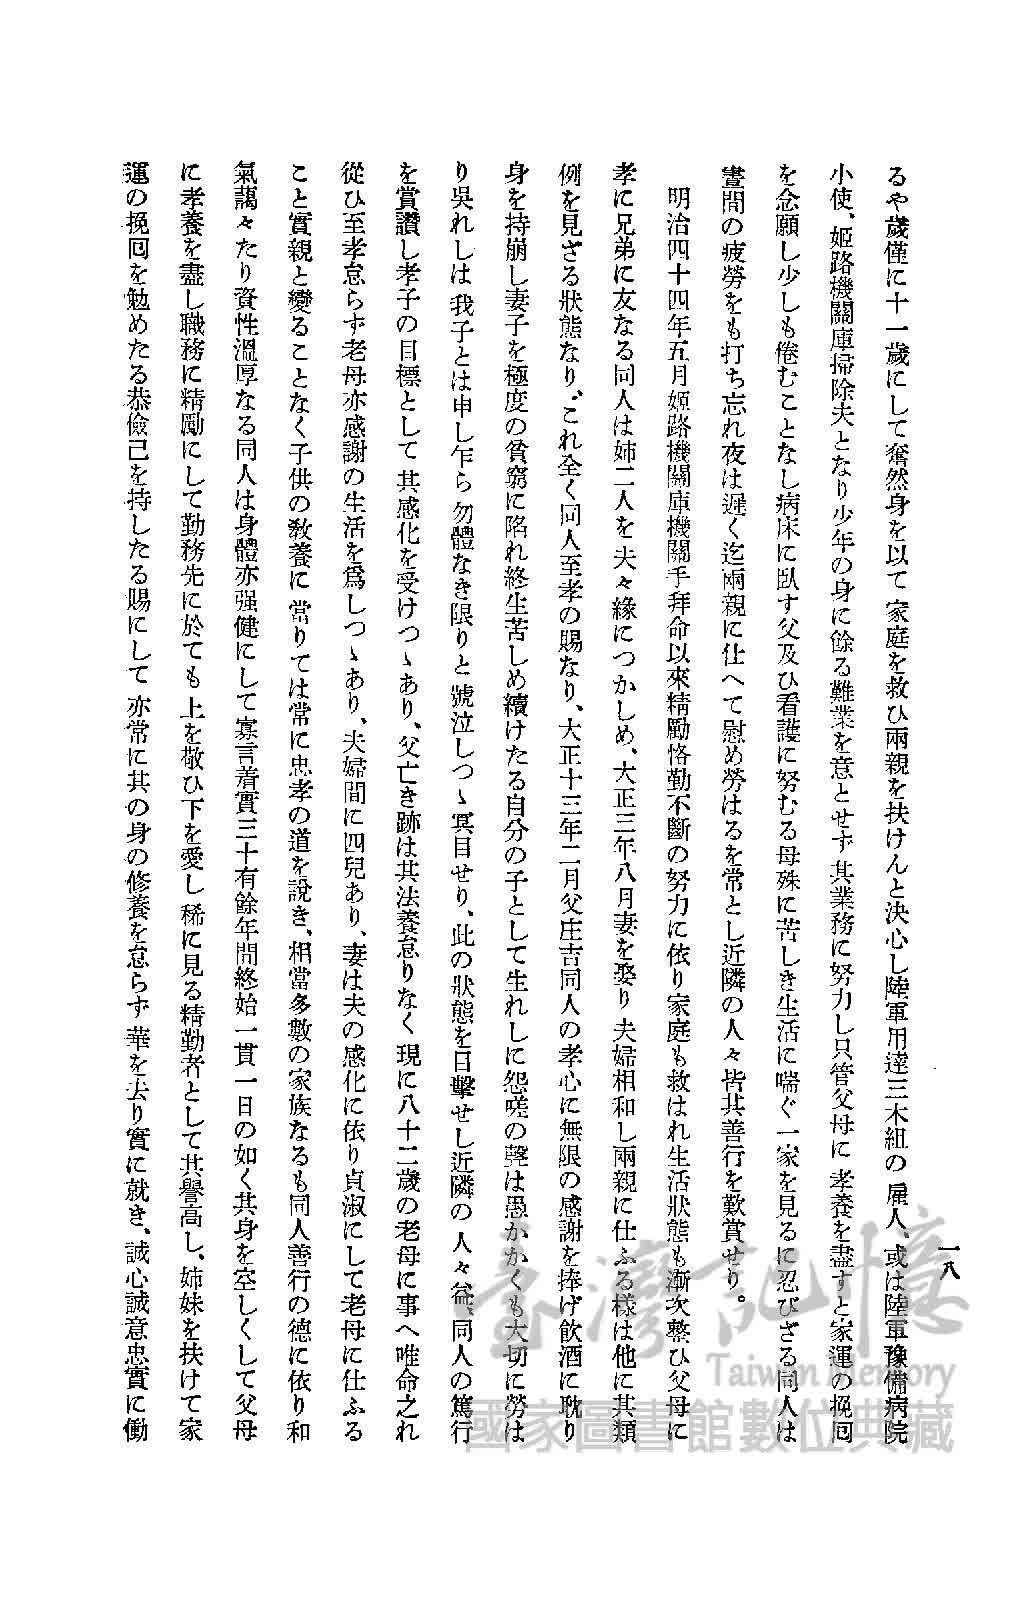 一八
るや歲僅に十一歲にして奮然身を以て家庭を救ひ兩親を扶けんと決心し陸軍用達三木組の雇人、或は陸軍豫備病院
小使、姬路機關庫掃除夫となり少年の身に餘る難業を意とせず其業務に努力し只管父母に孝養を盡すと家運の挽囘
を念願し少しも倦むことなし病床に臥す父及ひ看護に努むる母殊に苦しき生活に喘ぐ一家を見るに忍びざる同人は
晝間の疲勞をも打ち忘れ夜は遲く迄兩親に仕へて慰め勞はるを常とし近隣の人々皆其善行を歎賞せり。
明治四十四年五月姬路機關庫機關手拜命以來精勵恪勤不斷の努力に依り家庭も救はれ生活狀態も漸次整ひ父母に
孝に兄弟に友なる同人は姉二人を夫々緣につかしめ、大正三年八月妻を娶り夫婦相和し兩親に仕ふる樣は他に其類
例を見ざる狀態なり、これ全く同人至孝の賜なり、大正十三年二月父庄吉同人の孝心に無限の感謝を捧げ飮酒に耽り
身を持崩し妻子を極度の貧窮に陷れ終生苦しめ續けたる自分の子として生れしに怨嗟の聲は愚かかくも大切に勞は
り吳れしは我子とは申し乍ら勿體なき限りと號泣しつゝ冥目せり、此の狀態を目擊せし近隣の人々益、同人の篤行
を賞讚し孝子の目標として其感化を受けつゝあり、父亡き跡は其法養怠りなく現に八十二歲の老母に事へ唯命之れ
從ひ至孝怠らず老母亦感謝の生活を爲しつゝあり、夫婦間に四兒あり、妻は夫の感化に依り貞淑にして老母に仕ふる
こと實親と變ることなく子供の敎養に當りては常に忠孝の道を說き、相當多數の家族なるも同人善行の德に依り和
氣藹々たり資性溫厚なる同人は身體亦强健にして寡言着實三十有餘年間終始一貫一日の如く其身を空しくして父母
に孝養を盡し職務に精勵にして勤務先に於ても上を敬ひ下を愛し稀に見る精勤者として其譽高し、姉妹を扶けて家
運の挽囘を勉めたる恭儉己を持したる賜にして亦常に其の身の修養を怠らず華を去り實に就き、誠心誠意忠實に働
臺灣記憶
Taiwan Memory
國家圖書館數位典藏